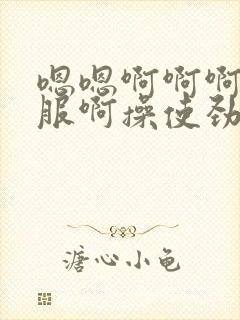 嗯嗯啊啊啊
服啊操使劲
溏心小龟